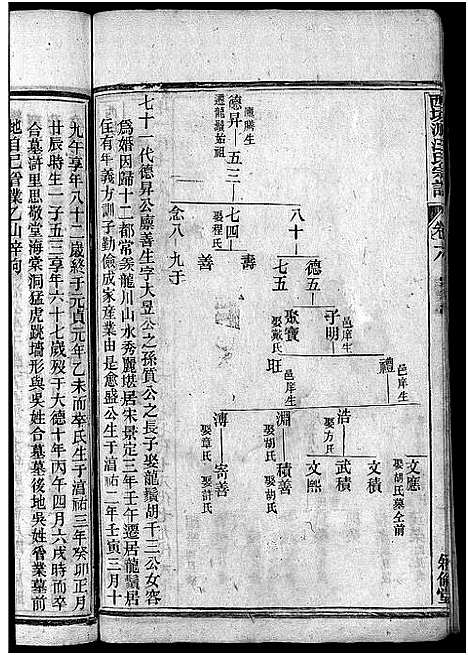 卷六
廪膳生
德昇—五三
遷龍鬚始祖
八十
德五
七五
七四
娶程氏
壽
善
念八—九于
邑庠生
子明
聚寶
娶戴氏
旺
邑庠生
禮
邑庠生
浩
娶方氏
淵
娶胡氏
溥
娶章氏
文應
娶胡氏墓仝前
文積
武積
文熙
積善
寄善
娶許氏
敘倫堂
七十一代德昇公廪善生字大昱公之孫質公之長子娶龍鬚胡千三公女容
爲婚因歸十二都常羨龍川山水秀麗堪居宋景定三年壬午遷居龍鬚居
住有年義方訓子勤儉成家産業由是愈盛公生于滈祐二年壬寅三月十
九午享年八十二歲終于元貞元年乙未而卒氏生于滈祐三年癸卯正月
廿辰時生一子五三享年六十七歲歿于大德十年丙午四月六戌時而卒
合墓澍里思敬堂海棠洞猛虎跳墻形與吳姓合墓墓後地吳姓眢業墓前
地自己眢業乙山辛向